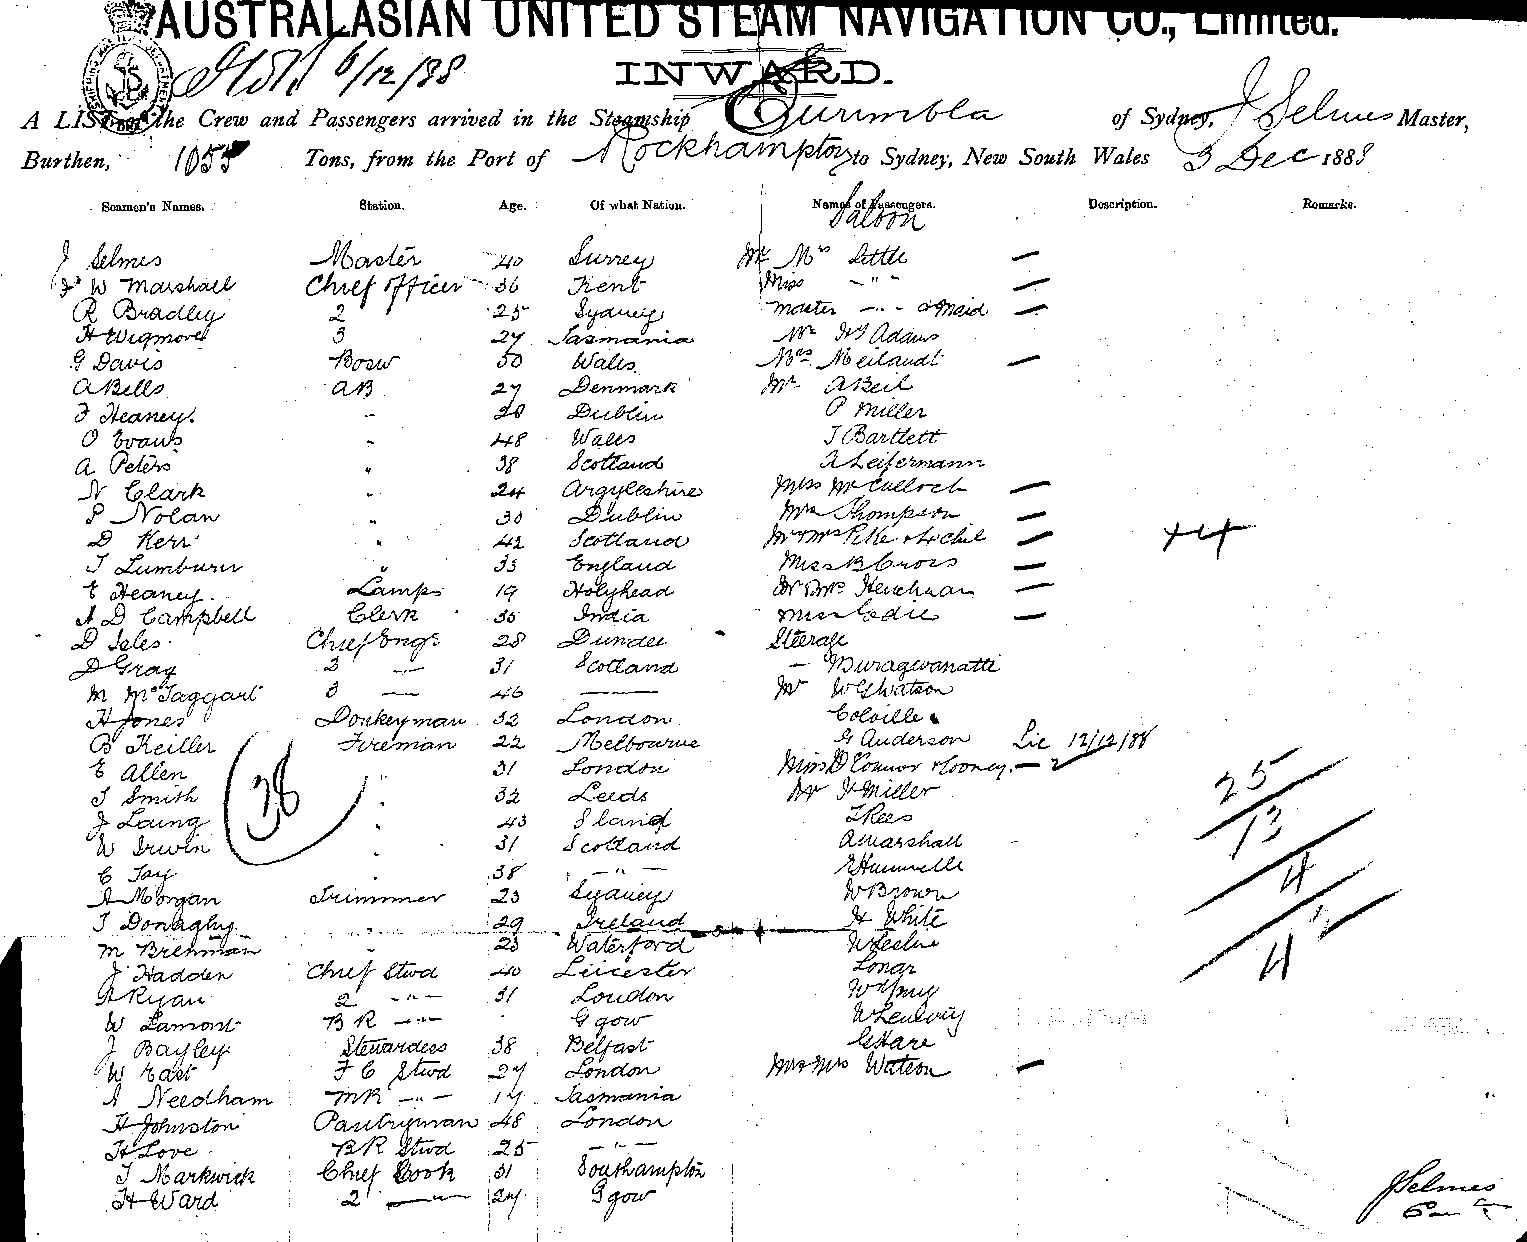 AUSTRALASIAN UNITED STEAM NAVIGATION CO., Limited.
6/12/88
INWARD.
A LIST of the Crew and Passengers arrived in the Steamship Gurimbla of Sydney, J Selmes Master,
Burthen, 1055 Tons, from the Port of Rockhampton to Sydney, New South Wales 3 Dec 1888
Seamen's Names. Station. Age. Of what Nation. Names of Passengers. Description. Remarks.
Saloon
J Selmes Master 40 Surrey Mr Mrs Little —
W Marshall Chief officer 36 Kent Miss - " - —
R Bradley 2 25 Sydney master - " - & maid —
H Wigmore 3 27 Tasmania Mr Adams
G Davis Bosw 50 Wales Mrs —
A Bells AB 27 Denmark Mr A Beil
F Heaney. " 28 Dublin P Miller
O Evans " 48 Wales T Bartlett
A Peters " 38 Scotland A Leifermann
N Clark " 24 Argyleshire Miss McCulloch —
P Nolan " 30 Dublin Mrs Thompson —
D Kerr " 42 Scotland Mr & Mrs Pike —
T Lumburn " 33 England Miss B Cross —
E Heaney. Lamps 19 Holyhead —
A D Campbell Clerk 35 India Miss Eadie —
D Isles Chief Engr 28 Dundee Steerage
D Gray 2 — 31 Scotland
M McTaggart 3 — 46 — Mr W G Watson
H Jones Donkeyman 32 London Colville
B Keiller Fireman 22 Melbourne G Anderson Lic 12/12/88
E Allen " 31 London Miss O Connor & Cooney. — 2
T Smith " 32 Leeds Mr H Miller 25
J Laing " 43 S land T Rees
W Irwin " 31 Scotland A Marshall 13
C Tay " 38 - " -
A Morgan Trimmer 23 Sydney W Brown 4
T Donaghy " 29 Ireland H White
M Brennan " 23 Waterford W Leslie
J Hadden Chief Stwd 40 Leicester 4
A Ryan 2 - " - 31 London
W Lamont B R - " - G gow
J Bayley Stewardess 38 Belfast G Hare
W East F C Stwd 27 London Mr & Mrs Watson —
A Needham MR - " - 17 Tasmania
H Johnston Pantryman 48 London
H Love BR Stwd 25 - " -
T Markwick Chief Cook 31 Southampton
H Ward 2 — 24 G gow
38
J Selmes